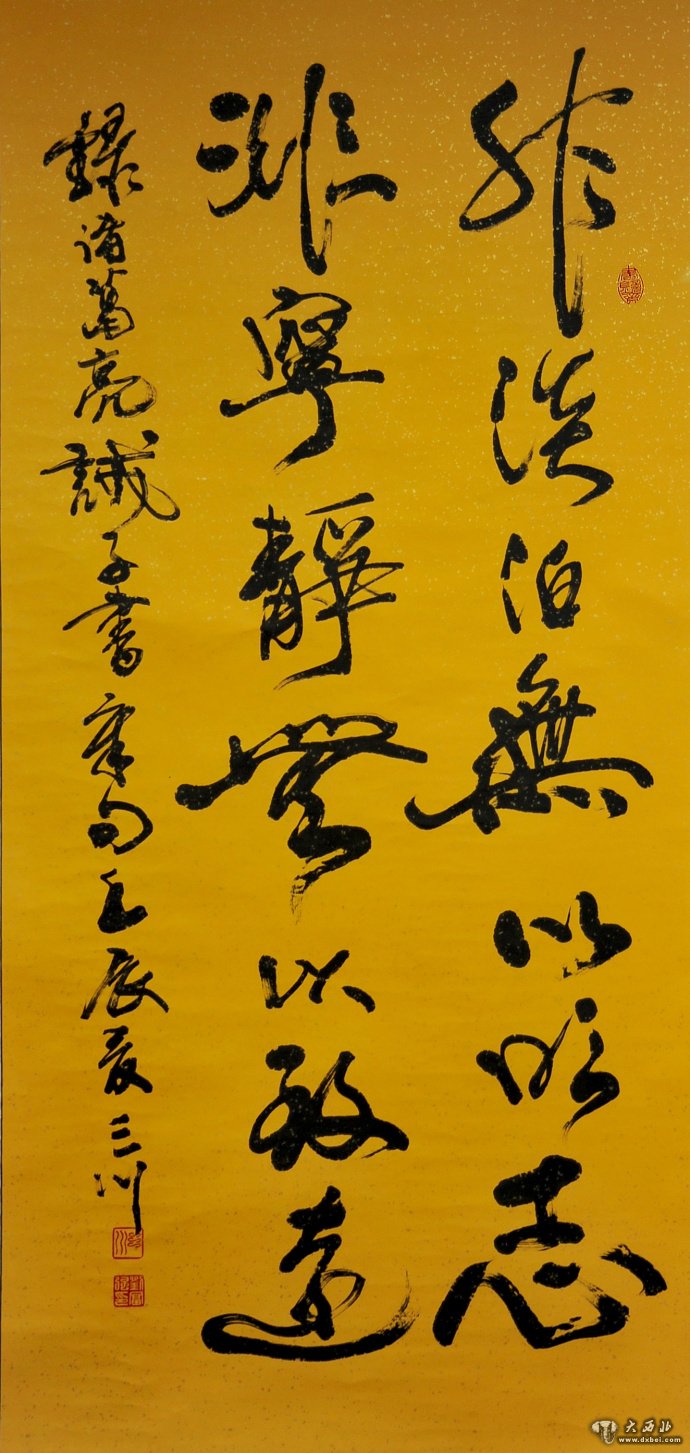 非淡泊無以明志
非寧靜無以致遠
錄諸葛亮誡子書章句壬辰夏三川
大西北
www.dxbei.com